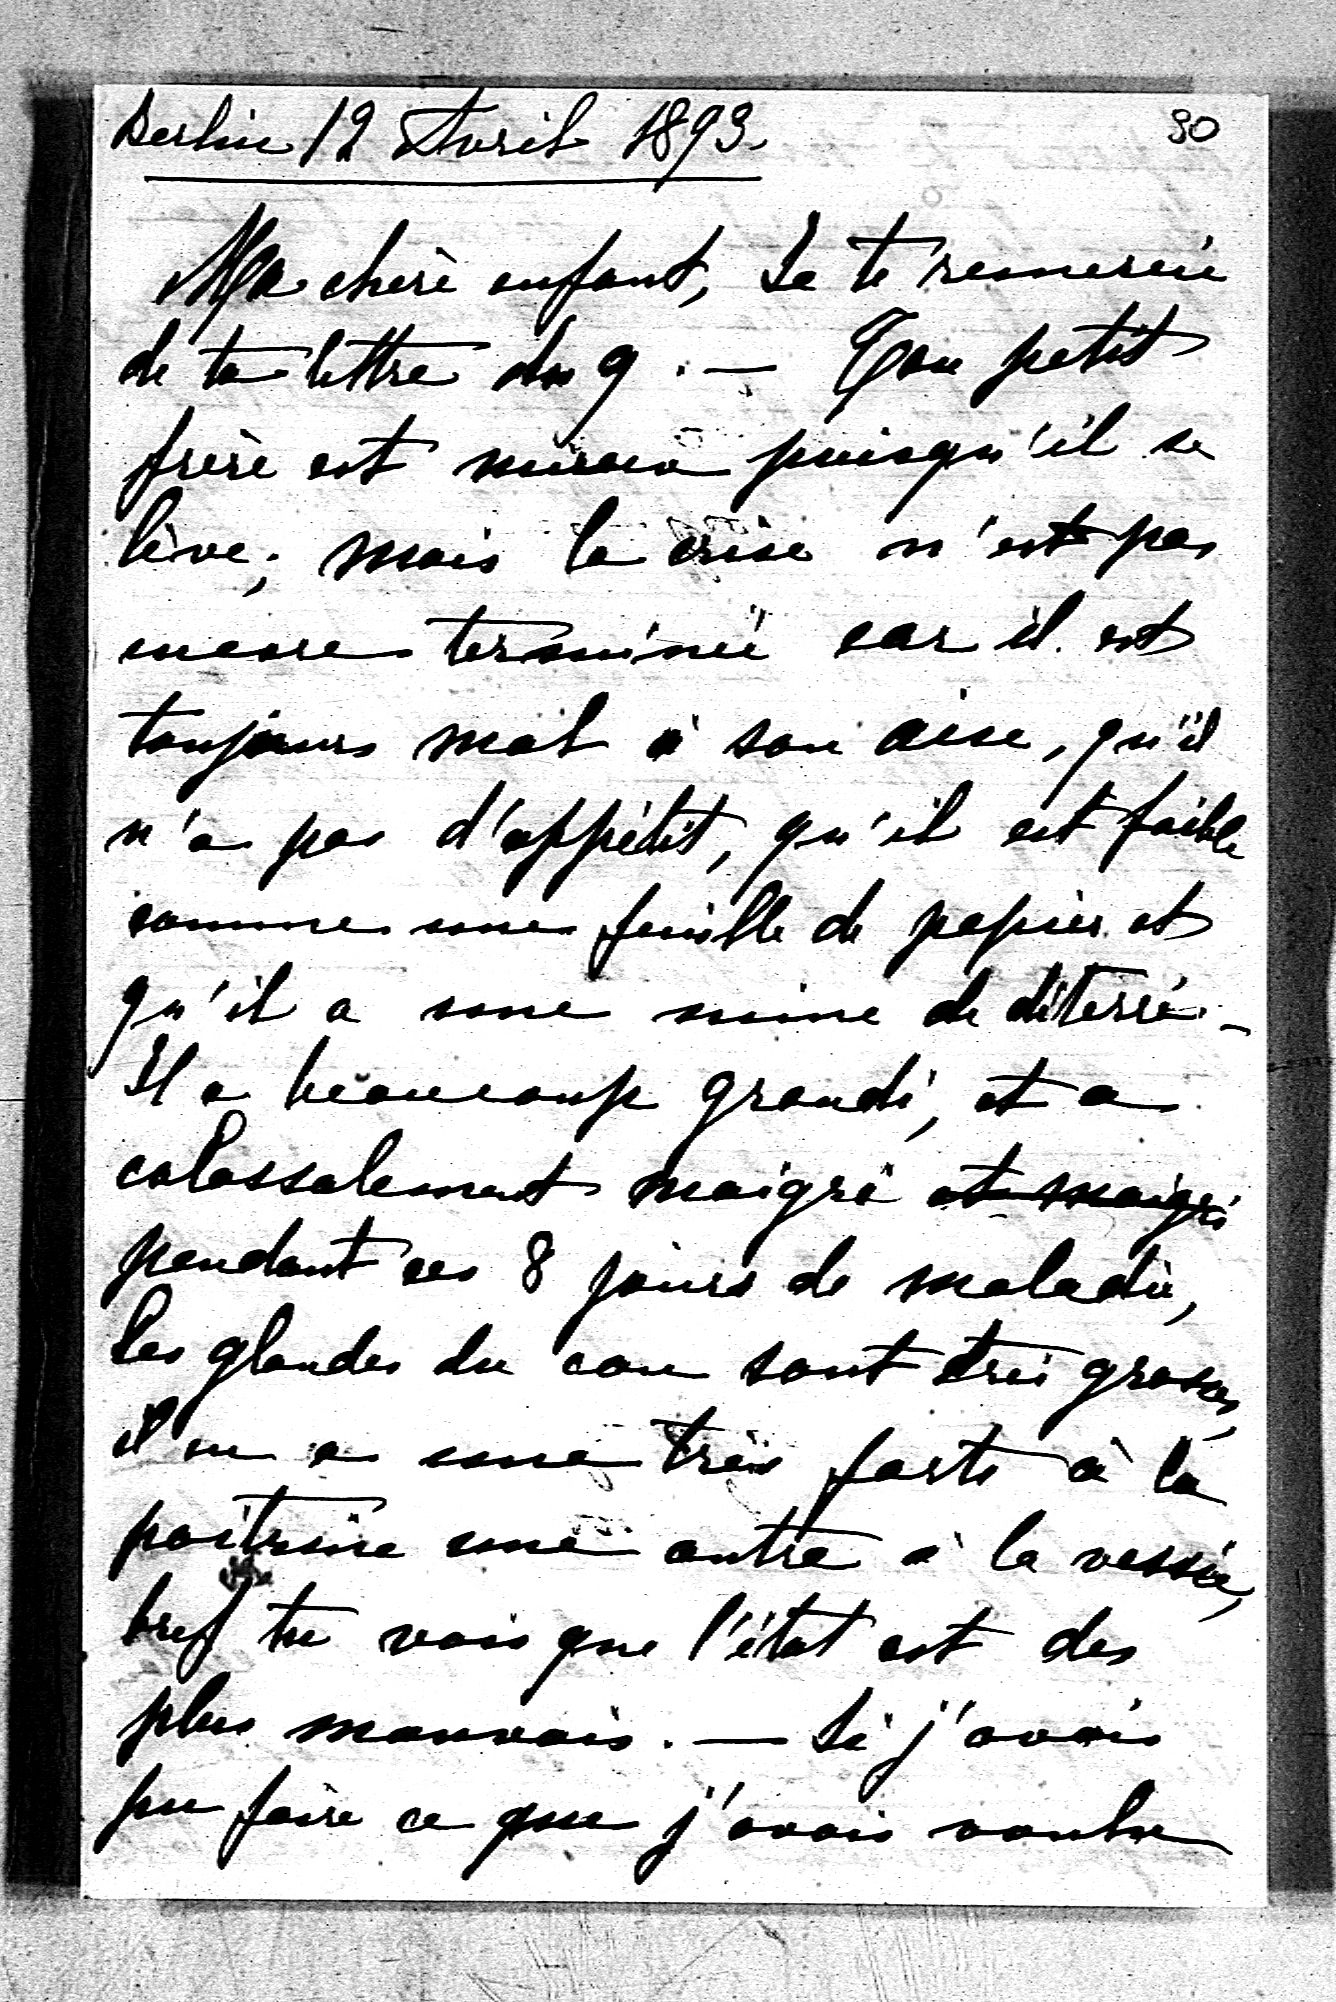 Berlin 12 Avril 1893.
30
Ma chère enfant, Je te remercie
de ta lettre du 9. — Ton petit
frère est mieux puisqu'il se
lève; mais la crise n'est pas
encore terminée car il est
toujours mal à son aise, qu'il
n'a pas d'appétit, qu'il est faible
comme une feuille de papier et
qu'il a une mine de déterré. -
Il a beaucoup grandi, et a
colossalement maigri et maigri
pendant ces 8 jours de maladie,
les glandes du cou sont très grosses,
il en a une très forte à la
poitrine une autre à la vessie,
bref tu vois que l'état est des
plus mauvais. — Si j'avais
pu faire ce que j'avais voulu